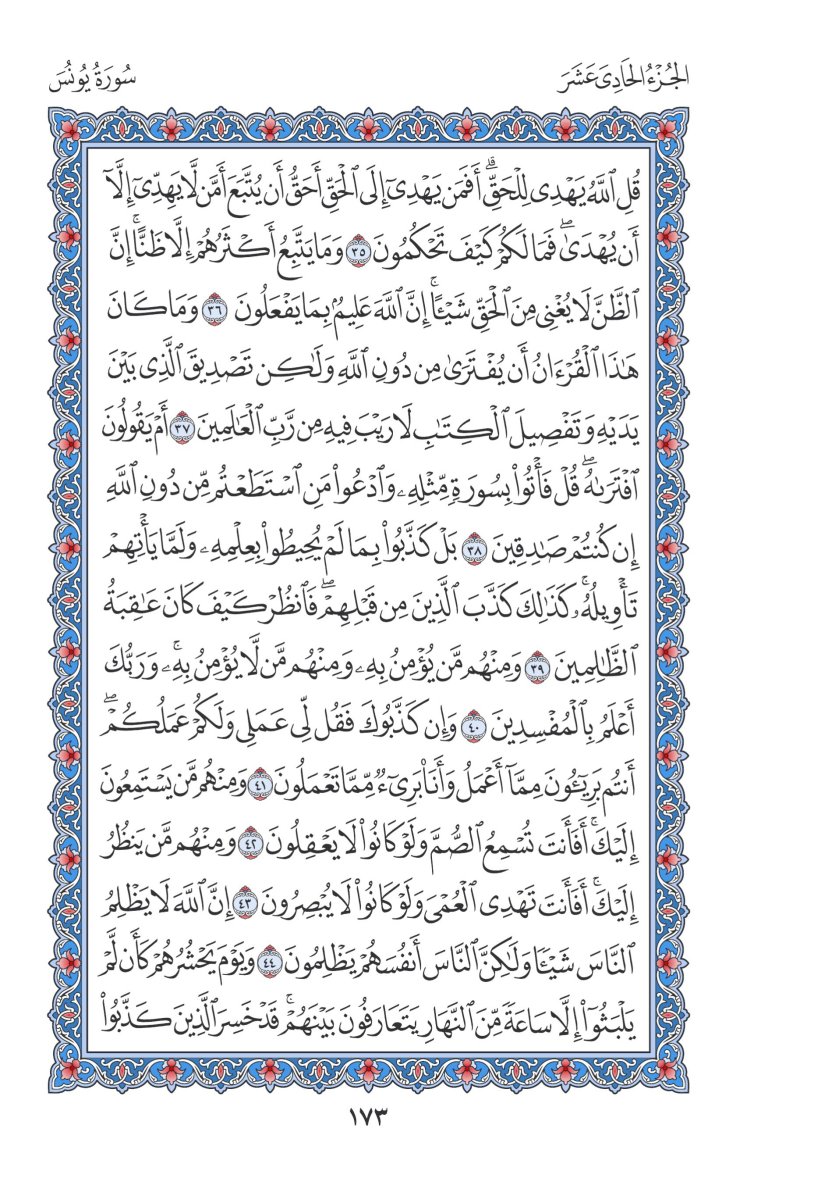 الجُزْءُ الحَادِىَ عَشَرَ
سُورَةُ يُونُسَ
قُلِ ٱللَّهُ يَهْدِى لِلْحَقِّۗ أَفَمَن يَهْدِىٓ إِلَى ٱلْحَقِّ أَحَقُّ أَن يُتَّبَعَ أَمَّن لَّا يَهِدِّىٓ إِلَّآ
أَن يُهْدَىٰۖ فَمَا لَكُمْ كَيْفَ تَحْكُمُونَ ٣٥ وَمَا يَتَّبِعُ أَكْثَرُهُمْ إِلَّا ظَنًّاۚ إِنَّ
ٱلظَّنَّ لَا يُغْنِى مِنَ ٱلْحَقِّ شَيْـًٔاۚ إِنَّ ٱللَّهَ عَلِيمٌۢ بِمَا يَفْعَلُونَ ٣٦ وَمَا كَانَ
هَٰذَا ٱلْقُرْءَانُ أَن يُفْتَرَىٰ مِن دُونِ ٱللَّهِ وَلَٰكِن تَصْدِيقَ ٱلَّذِى بَيْنَ
يَدَيْهِ وَتَفْصِيلَ ٱلْكِتَٰبِ لَا رَيْبَ فِيهِ مِن رَّبِّ ٱلْعَالَمِينَ ٣٧ أَمْ يَقُولُونَ
ٱفْتَرَىٰهُۖ قُلْ فَأْتُوا۟ بِسُورَةٍ مِّثْلِهِۦ وَٱدْعُوا۟ مَنِ ٱسْتَطَعْتُم مِّن دُونِ ٱللَّهِ
إِن كُنتُمْ صَٰدِقِينَ ٣٨ بَلْ كَذَّبُوا۟ بِمَا لَمْ يُحِيطُوا۟ بِعِلْمِهِۦ وَلَمَّا يَأْتِهِمْ
تَأْوِيلُهُۥۚ كَذَٰلِكَ كَذَّبَ ٱلَّذِينَ مِن قَبْلِهِمْۖ فَٱنظُرْ كَيْفَ كَانَ عَٰقِبَةُ
ٱلظَّٰلِمِينَ ٣٩ وَمِنْهُم مَّن يُؤْمِنُ بِهِۦ وَمِنْهُم مَّن لَّا يُؤْمِنُ بِهِۦۚ وَرَبُّكَ
أَعْلَمُ بِٱلْمُفْسِدِينَ ٤٠ وَإِن كَذَّبُوكَ فَقُل لِّى عَمَلِى وَلَكُمْ عَمَلُكُمْۖ
أَنتُم بَرِيٓـُٔونَ مِمَّآ أَعْمَلُ وَأَنَا۠ بَرِىٓءٌ مِّمَّا تَعْمَلُونَ ٤١ وَمِنْهُم مَّن يَسْتَمِعُونَ
إِلَيْكَۚ أَفَأَنتَ تُسْمِعُ ٱلصُّمَّ وَلَوْ كَانُوا۟ لَا يَعْقِلُونَ ٤٢ وَمِنْهُم مَّن يَنظُرُ
إِلَيْكَۚ أَفَأَنتَ تَهْدِى ٱلْعُمْىَ وَلَوْ كَانُوا۟ لَا يُبْصِرُونَ ٤٣ إِنَّ ٱللَّهَ لَا يَظْلِمُ
ٱلنَّاسَ شَيْـًٔا وَلَٰكِنَّ ٱلنَّاسَ أَنفُسَهُمْ يَظْلِمُونَ ٤٤ وَيَوْمَ يَحْشُرُهُمْ كَأَن لَّمْ
يَلْبَثُوٓا۟ إِلَّا سَاعَةً مِّنَ ٱلنَّهَارِ يَتَعَارَفُونَ بَيْنَهُمْۚ قَدْ خَسِرَ ٱلَّذِينَ كَذَّبُوا۟
١٧٣